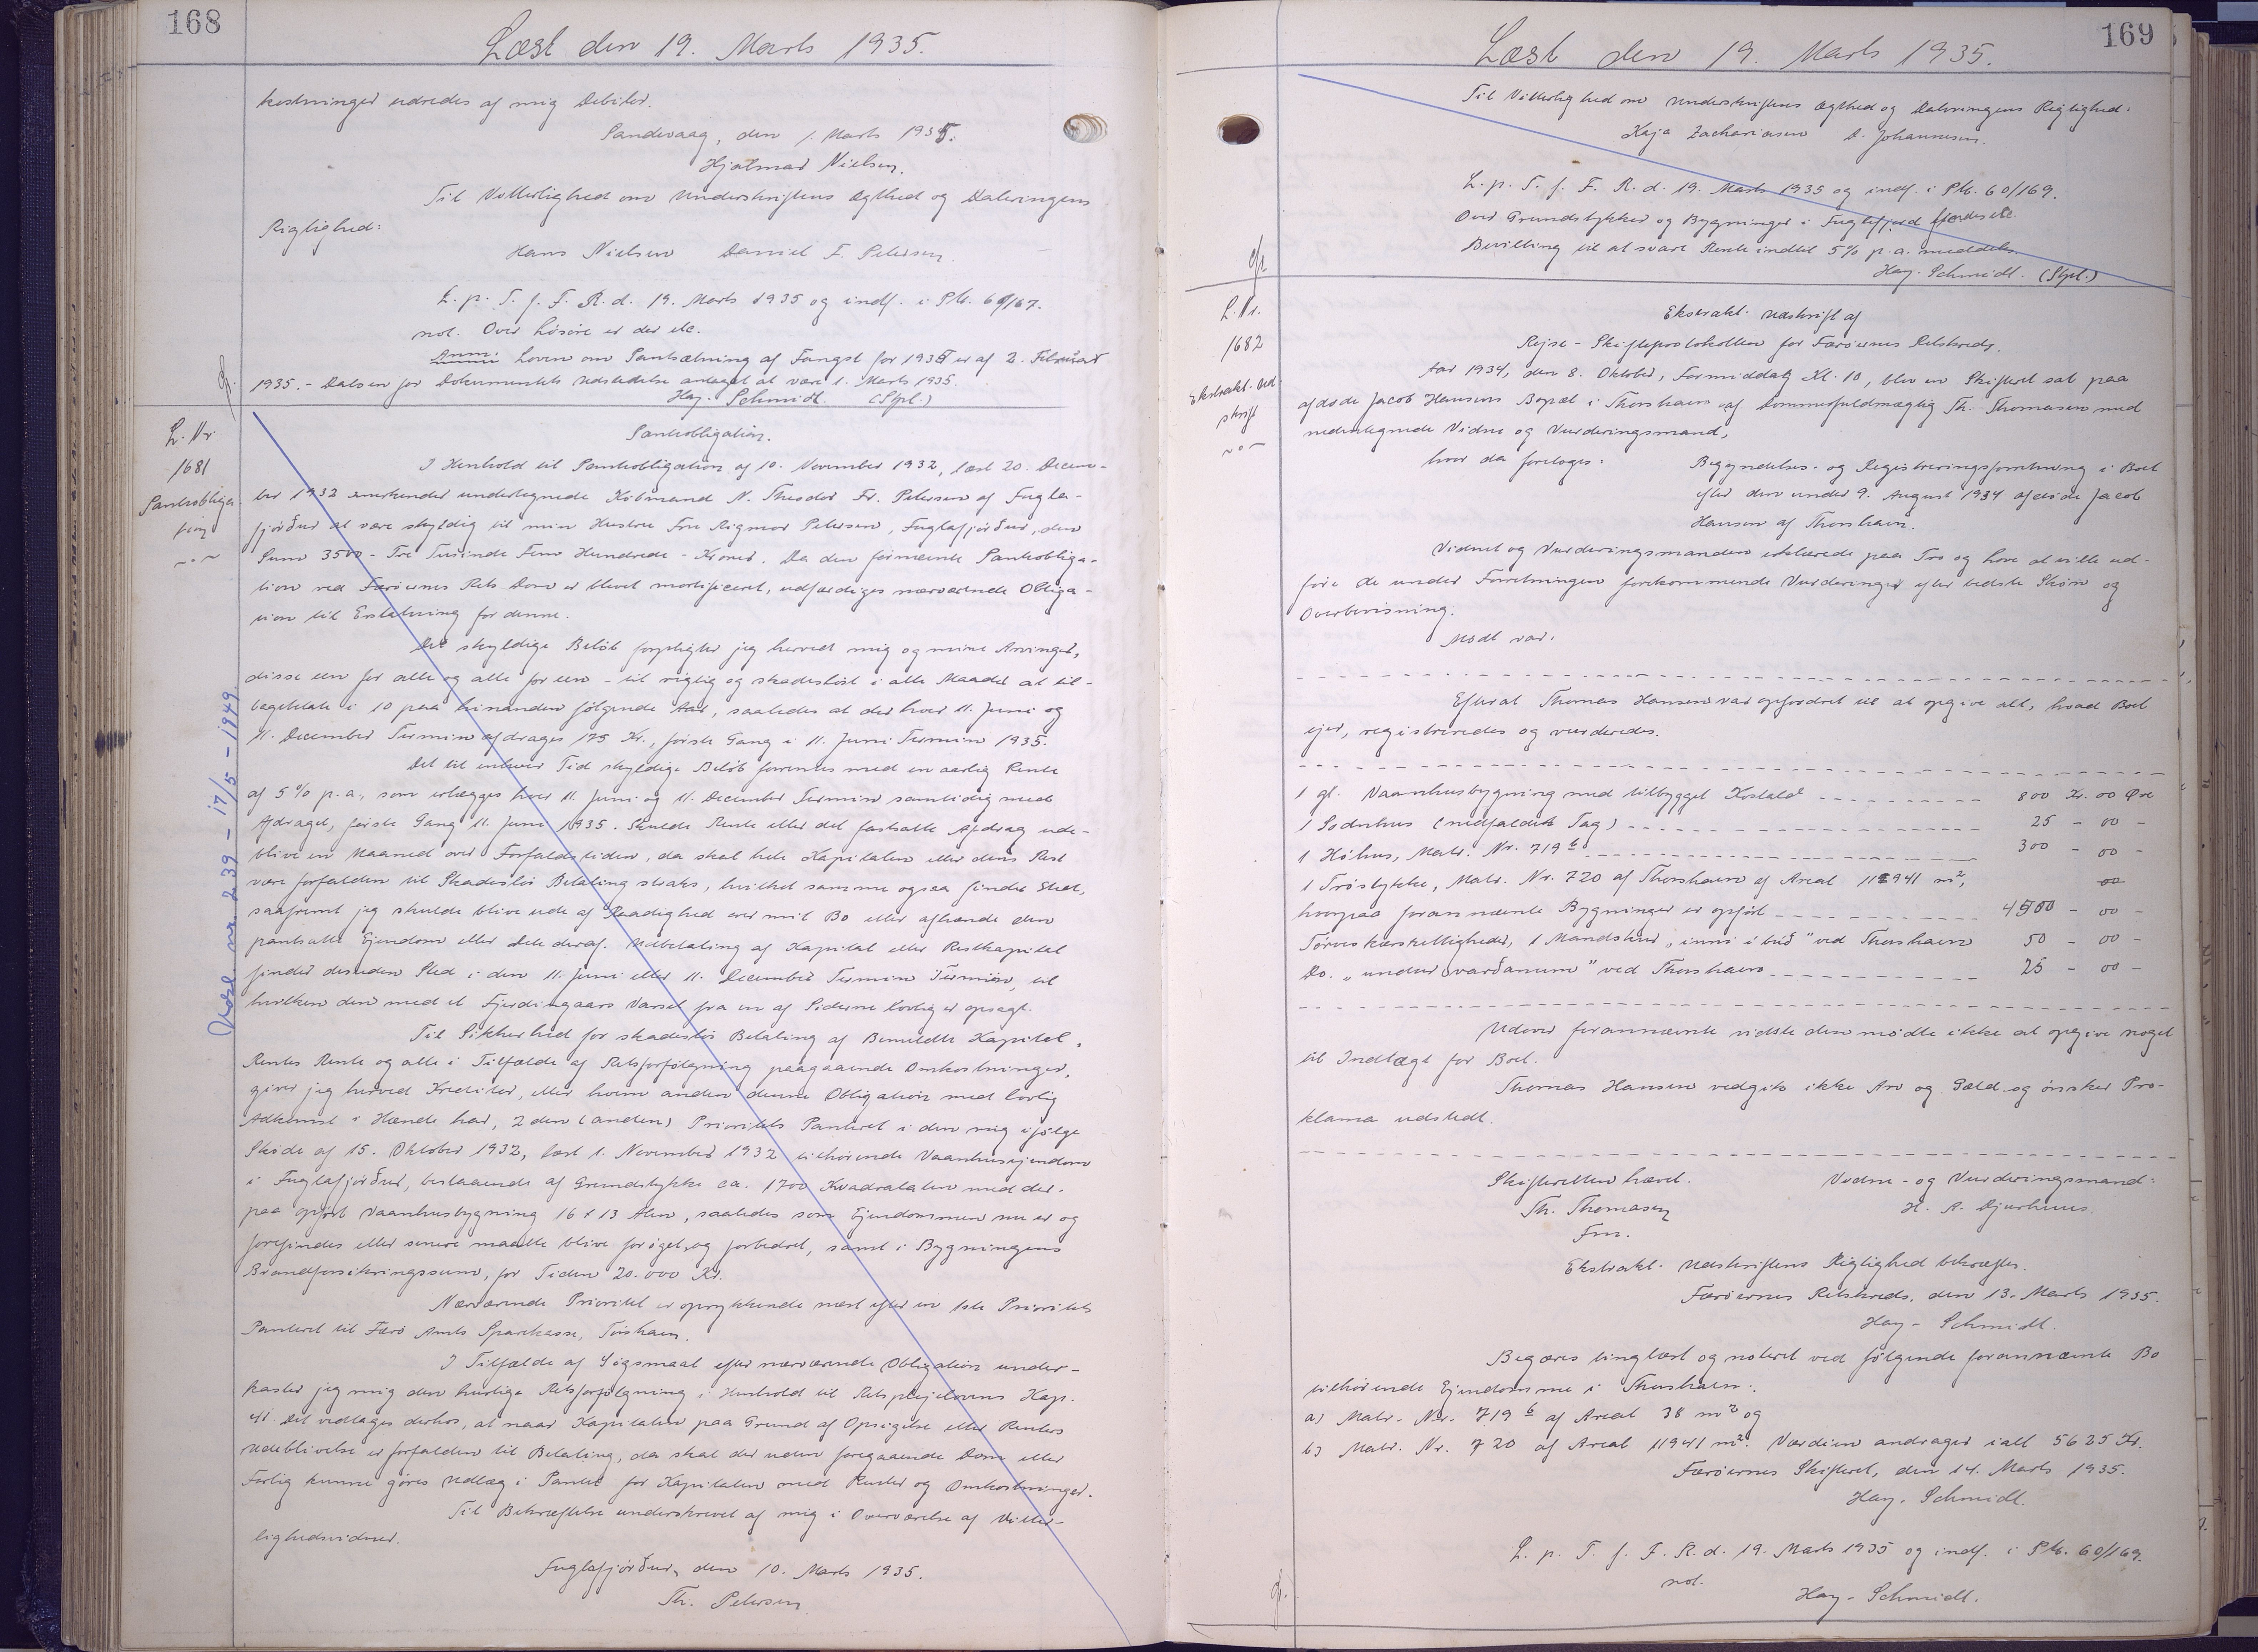 168
Læst den 19. Marts 1935.
kostninger udredes af mig Debitor.
Sandevaag, den 1. Marts 1935.
Hjalmar Nielsen.
Til Vitterlighed om Underskriftens Ægthed og Dateringens
Rigtighed:
Hans Nielsen Daniel F. Petersen.
L. p. T. f. F. R. d. 19. Marts 1935 og indf. i Ptk. 60/167.
not. Over Løsøre er der etc.
Anm: Loven om Pantsætning af Fangst for 1935 er af 2. Februar
1935. - Datoen for Dokumentets Udstedelse antaget at være 1. Marts 1935.
Hay-Schmidt. (Stpl.)
L. Nr.
1681
Pantobliga-
tion
Pantobligation.
I Henhold til Pantobligation af 10. November 1932, læst 20. Decem-
ber 1932 anerkender undertegnede Købmand N. Theodor Fr. Petersen af Fugla-
fjørður at være skyldig til min Hustru Fru Rigmor Petersen, Fuglafjørður, den
Sum 3500 - Tre Tusinde Fem Hundrede - Kroner. Da den førnævnte Pantobliga-
tion ved Færøernes Rets Dom er blevet mortificeret, udfærdiges nærværende Obliga-
tion til Erstatning for denne.
Det skyldige Beløb forpligter jeg herved mig og mine Arvinger,
disse een for alle og alle for een - til rigtig og skadesløst i alle Maader at til-
bagebetale i 10 paa hinanden følgende Aar, saaledes at der hver 11. Juni og
11. December Termin afdrages 175 Kr., første Gang i 11. Juni Termin 1935.
Det til enhver Tid skyldige Beløb forrentes med en aarlig Rente
af 5 % p.a., som erlægges hver 11. Juni og 11. December Termin samtidig med
Afdraget, første Gang 11. Juni 1935. Skulde Rente eller det fastsatte Afdrag ude-
blive en Maaned over Forfaldstiden, da skal hele Kapitalen eller dens Rest
være forfalden til Skadesløs Betaling straks, hvilket samme ogsaa finder Sted,
saafremt jeg skulde blive ude af Raadighed over mit Bo eller afhænde den
pantsatte Ejendom eller Dele deraf. Udbetaling af Kapital eller Restkapital
finder desuden Sted i den 11. Juni eller 11. December Termin Termin, til
hvilken den med et Fjerdingaars Varsel fra en af Siderne lovlig er opsagt.
Til Sikkerhed for skadesløs Betaling af Bemeldte Kapital,
Renters Rente og alle i Tilfælde af Retsforfølgning paagaaende Omkostninger,
giver jeg herved Kreditor, eller hvem anden denne Obligation med lovlig
Adkomst i Hænde har, 2den (anden) Prioritets Panteret i den mig ifølge
Skøde af 15. Oktober 1932, læst 1. November 1932 tilhørende Vaanhusejendom
i Fuglafjørður, bestaaende af Grundstykke ca. 1700 Kvadratalen med der-
paa opført Vaanhusbygning 16 x 13 Alen, saaledes som Ejendommen nu er og
forefindes eller senere maatte blive forøget og forbedret, samt i Bygningens
Brandforsikringssum, for Tiden 20.000 Kr.
Nærværende Prioritet er oprykkende næst efter en 1ste Prioritets
Panteret til Færø Amts Sparekasse, Tórshavn.
I Tilfælde af Søgsmaal efter nærværende Obligation under-
kaster jeg mig den hurtige Retsforfølgning i Henhold til Retsplejelovens Kap.
41. Det vedtages derhos, at naar Kapitalen paa Grund af Opsigelse eller Renters
Udeblivelse er forfalden til Betaling, da skal der uden foregaaende Dom eller
Forlig kunne gøres Udlæg i Pantet for Kapitalen med Renter og Omkostninger.
Til Bekræftelse underskrevet af mig i Overværelse af Vitter-
lighedsvidner.
Fuglafjørður, den 10. Marts 1935.
Th. Petersen
nr. 239 - 17/5 - 1949
169
Læst den 19. Marts 1935.
Til Vitterlighed om Underskriftens Ægthed og Dateringens Rigtighed:
Kaja Zachariasen D. Johannesen.
L. p. T. f. F. R. d. 19. Marts 1935 og indf. i Ptk. 60/169.
Over Grundstykker og Bygninger i Fuglefjord findes etc.
Bevilling til at svare Rente indtil 5% p.a. meddeles.
Hay-Schmidt. (Stpl.)
L. Nr.
1682
Ekstrakt-Ud-
skrift
Ekstrakt-Udskrift af
Rejse-Skifteprotokollen for Færøernes Retskreds.
Aar 1934, den 8. Oktober, Formiddag Kl. 10, blev en Skifteret sat paa
afdøde Jacob Hansens Bopæl i Thorshavn af Dommerfuldmægtig Th. Thomasen med
undertegnede Vidne og Vurderingsmand,
hvor da foretoges:
Begyndelses- og Registreringsforretning i Boet
efter den under 9. August 1934 afdøde Jacob
Hansen af Thorshavn.
Vidnet og Vurderingsmanden erklærede paa Tro og Love at ville ud-
føre de under Forretningen forekommende Vurderinger efter bedste Skøn og
Overbevisning.
Mødt var:
Efterat Thomas Hansen var opfordret til at opgive alt, hvad Boet
ejer, registreredes og vurderedes.
1 gl. Vaanhusbygning med tilbygget Kostald 800 Kr. 00 Øre
1 Sodnhus (nedfaldet Tag) 25 - 00 -
1 Høhus, Matr. Nr. 719 b 300 - 00 -
1 Trøstykke, Matr. Nr. 720 af Thorshavn af Areal 11941 m²,
hvorpaa forannævnte Bygninger er opført 4500 - 00 -
Tørveskærsrettigheder, 1 Mandskur „inni í búð" ved Thorshavn 50 - 00 -
Do. „undur varðanum" ved Thorshavn 25 - 00 -
Udover forannævnte vidste den mødte ikke at opgive noget
til Indtægt for Boet.
Thomas Hansen vedgik ikke Arv og Gæld og ønsker Pro-
klama udstedt.
Skifteretten hævet.
Vidne- og Vurderingsmand:
Th. Thomasen
H. A. Djurhuus.
Fm.
Ekstrakt-Udskriftens Rigtighed bekræftes.
Færøernes Retskreds, den 13. Marts 1935.
Hay-Schmidt.
Begæres tinglæst og noteret ved følgende forannævnte Bo
tilhørende Ejendomme i Thorshavn:
a) Matr. Nr. 719 b af Areal 38 m² og
b) Matr. Nr. 720 af Areal 11941 m². Værdien andrager ialt 5625 Kr.
Færøernes Skifteret, den 14. Marts 1935.
Hay-Schmidt.
L. p. T. f. F. R. d. 19. Marts 1935 og indf. i Ptk. 60/169.
not.
Hay-Schmidt.